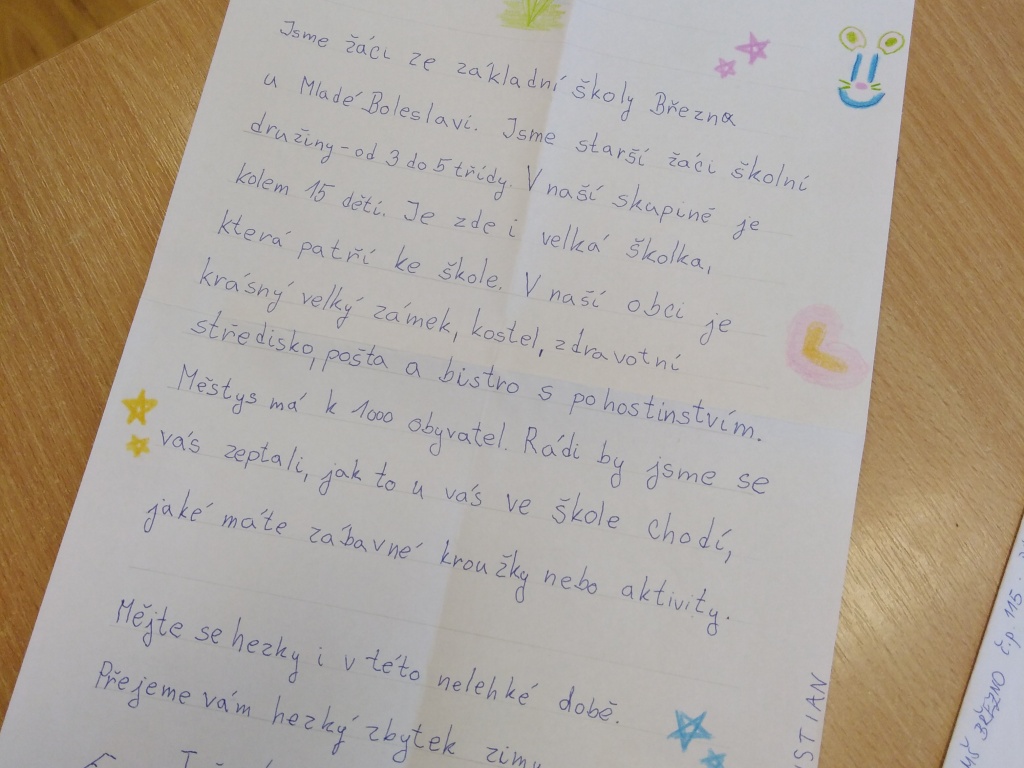 Jsme žáci ze základní školy Března
u Mladé Boleslavi. Jsme starší žáci školní
družiny - od 3 do 5 třídy. V naší skupině je
kolem 15 dětí. Je zde i velká školka,
která patří ke škole. V naší obci je
krásný velký zámek, kostel, zdravotní
středisko, pošta a bistro s pohostinstvím.
Městys má k 1000 obyvatel. Rádi by jsme se
vás zeptali, jak to u vás ve škole chodí,
jaké máte zábavné kroužky nebo aktivity.
Mějte se hezky i v této nelehké době.
Přejeme vám hezký zbytek zimy
STIAN
BŘEZNO č.p. 115